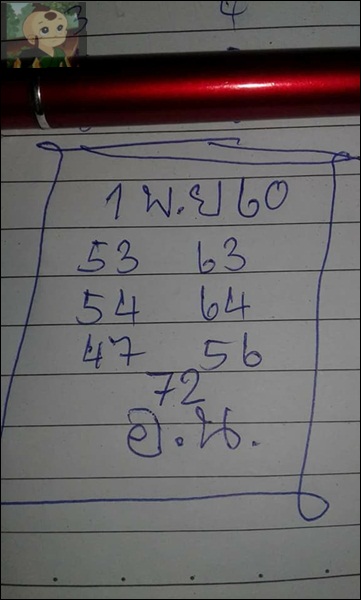 4
1 พ.ย 60
53 63
54 64
47 56
72
อ.น.